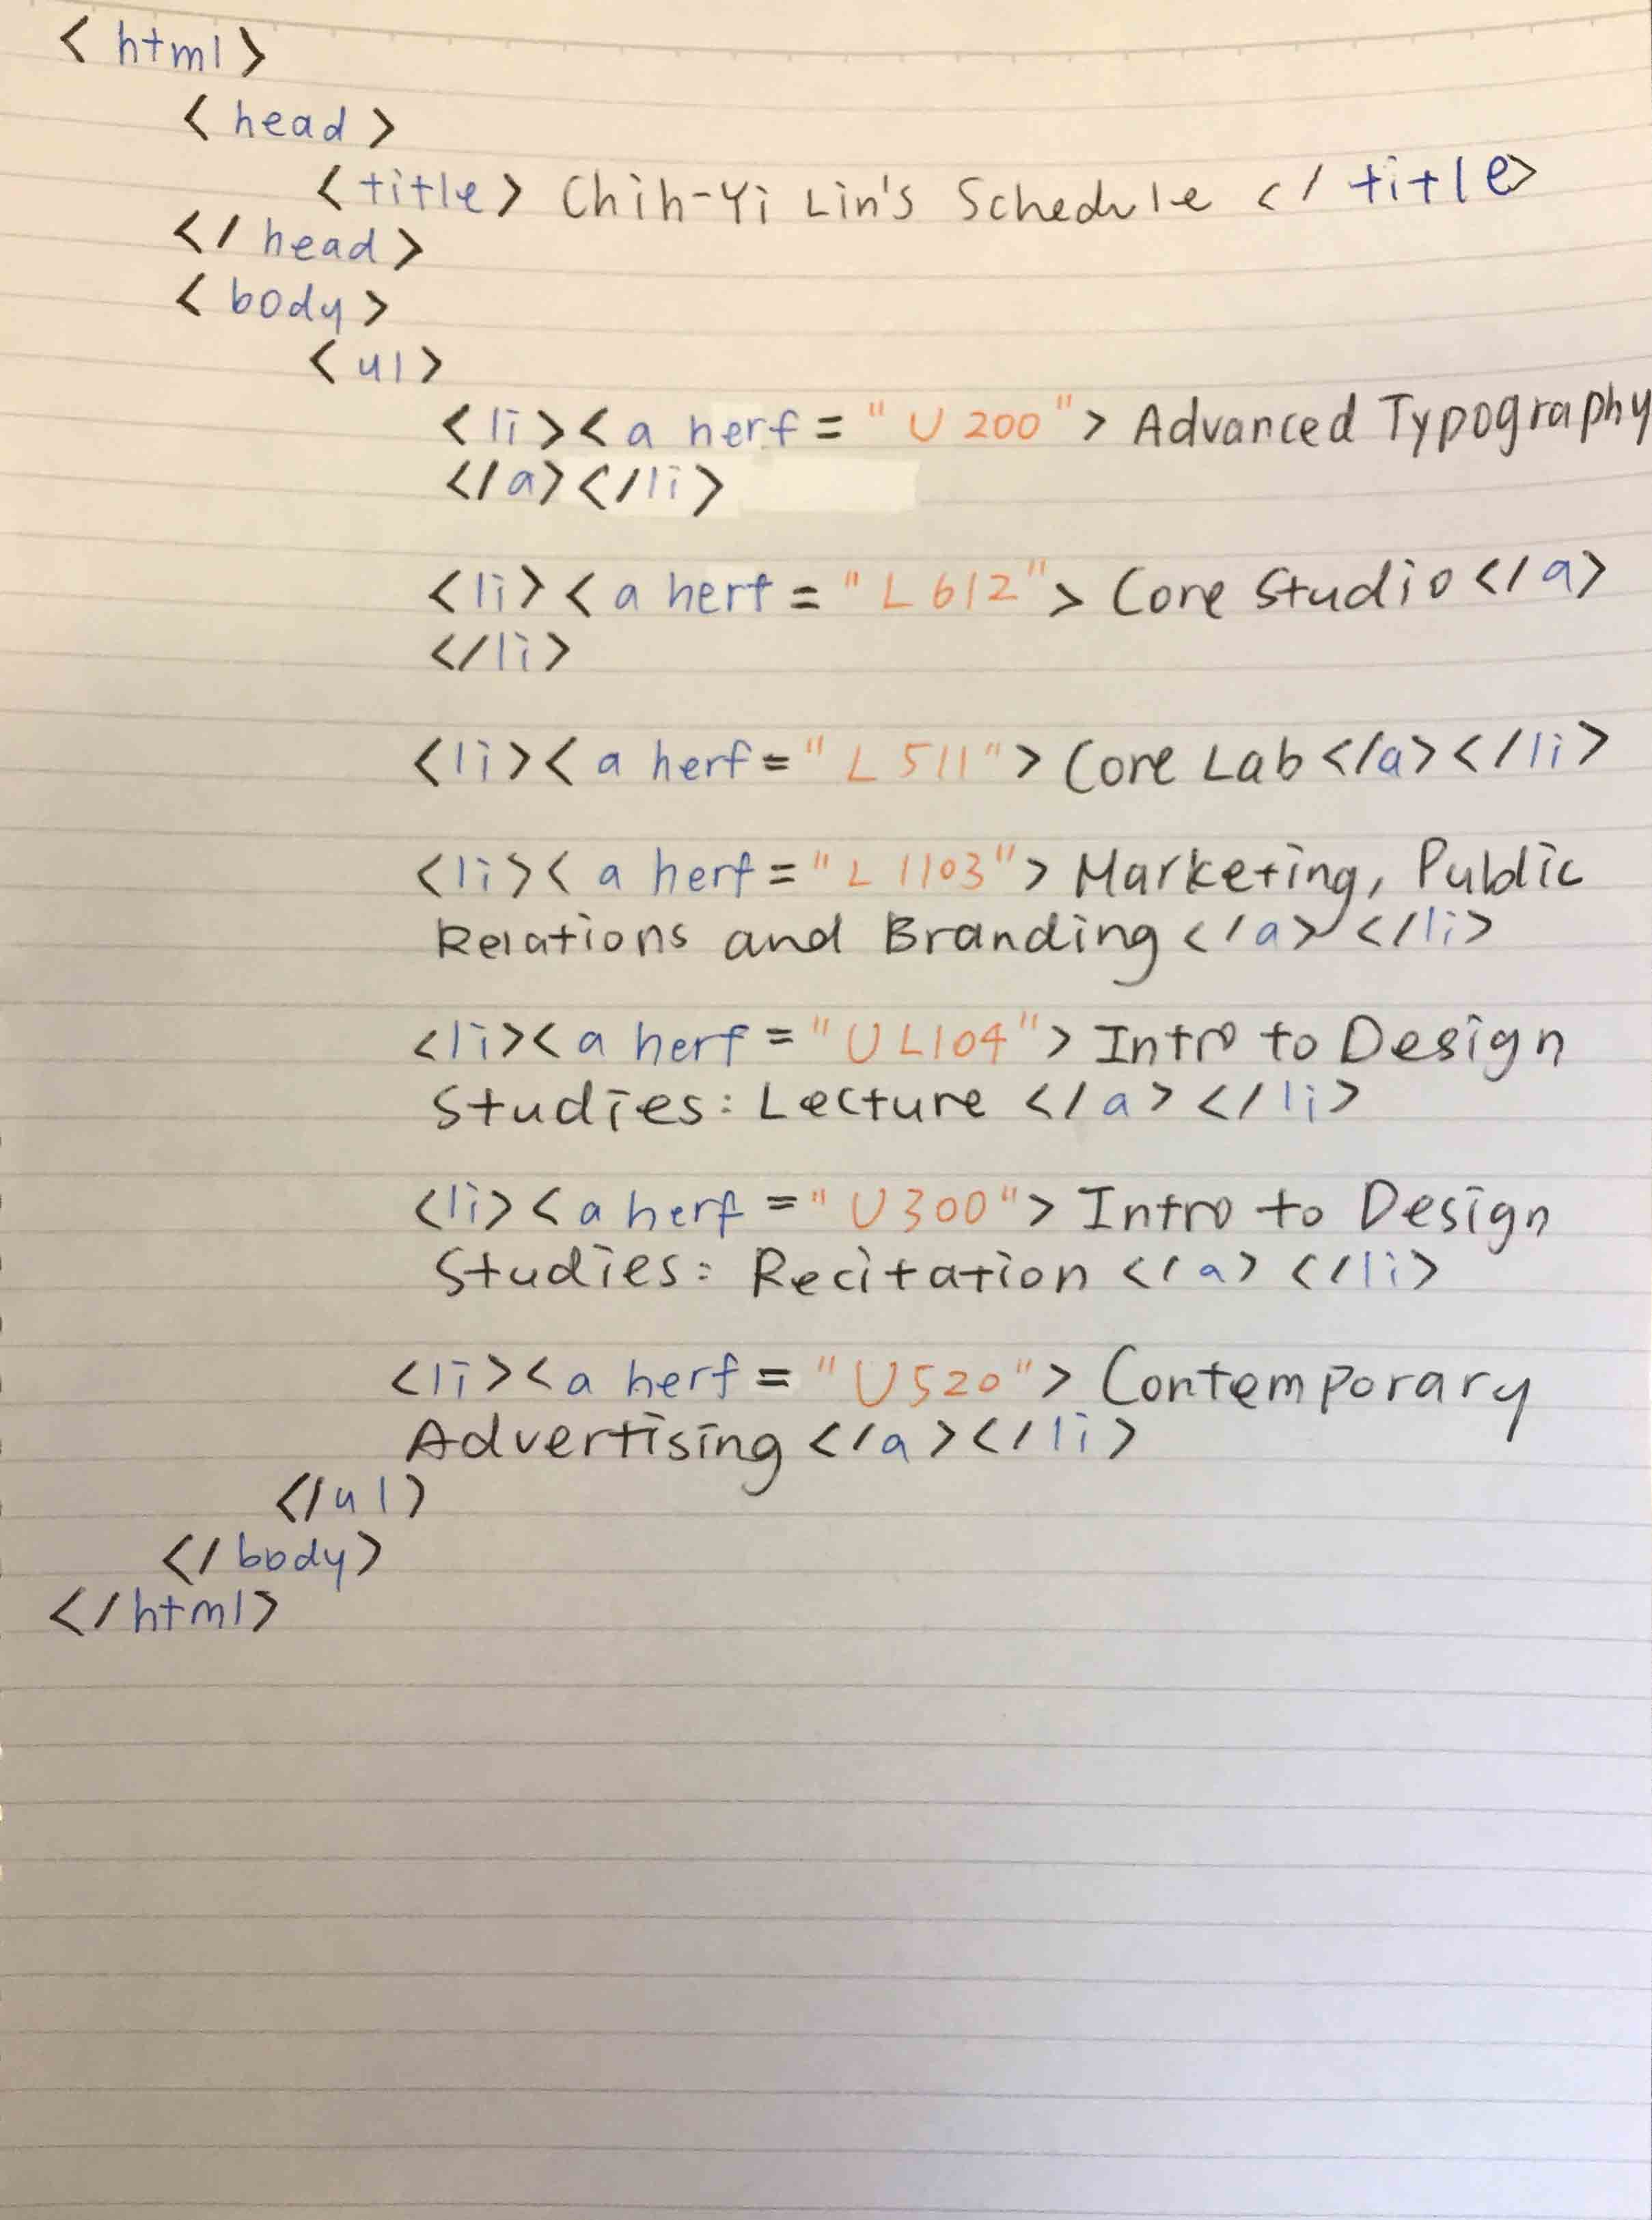 < html >
< head >
< title > Chih-Yi Lin's Schedule </ title >
</ head >
< body >
< ul >
< li >< a herf = "U 200" > Advanced Typography
</ a ></ li >
< li >< a herf = "L 612" > Core Studio </ a >
</ li >
< li >< a herf = "L 511" > Core Lab </ a ></ li >
< li >< a herf = "L 1103" > Marketing, Public
Relations and Branding </ a ></ li >
< li >< a herf = "UL104" > Intro to Design
Studies: Lecture </ a ></ li >
< li >< a herf = "U300" > Intro to Design
Studies: Recitation </ a ></ li >
< li >< a herf = "U520" > Contemporary
Advertising </ a ></ li >
</ ul >
</ body >
</ html >